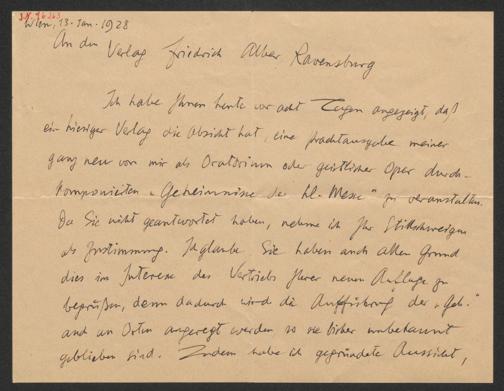 Wien, 13. Jan. 1928
An den Verlag Friedrich Alber Ravensburg
Ich habe Ihnen heute vor acht Tagen angezeigt, daß
ein hiesiger Verlag die Absicht hat, eine Prachtausgabe meiner
ganz neu von mir als Oratorium oder geistlicher Oper durch-
komponierten „Geheimnisse der hl. Messe" zu veranstalten.
Da Sie nicht geantwortet haben, nehme ich Ihr Stillschweigen
als Zustimmung. Ich glaube Sie haben auch allen Grund
dies im Interesse des Vertriebs Ihrer neuen Auflage zu
begrüßen, denn dadurch wird die Aufführung der „Geh."
auch an Orten angeregt werden wo sie bisher unbekannt
geblieben sind. Zudem habe ich gegründete Aussicht,